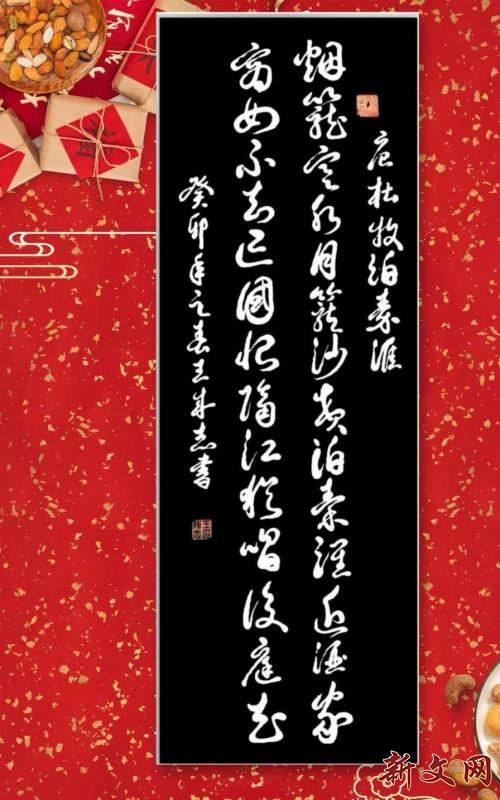 唐杜牧泊秦淮
烟籠寒水月籠沙夜泊秦淮近酒家
商女不知亡國恨隔江猶唱後庭花
癸卯年之春王成志書
新文网